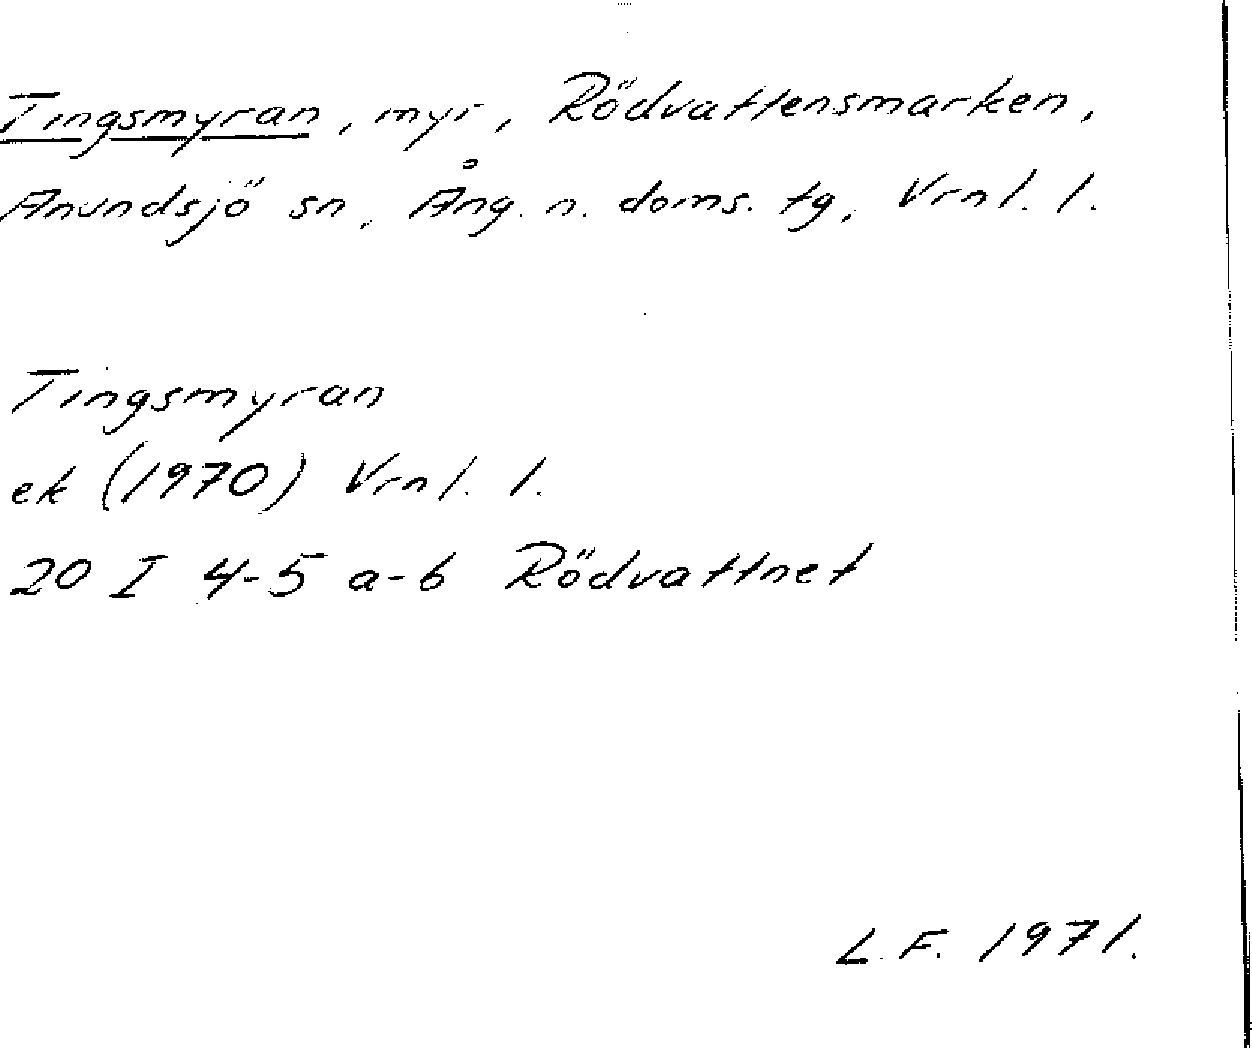 Tingsmyran, myr, Rödvattensmarken,
Anundsjö sn, Ång. n. doms. tg, Vrnl. l.
Tingsmyran
ek (1970) Vrnl. l.
20 I 4-5 a-b Rödvattnet
L.F. 1971.